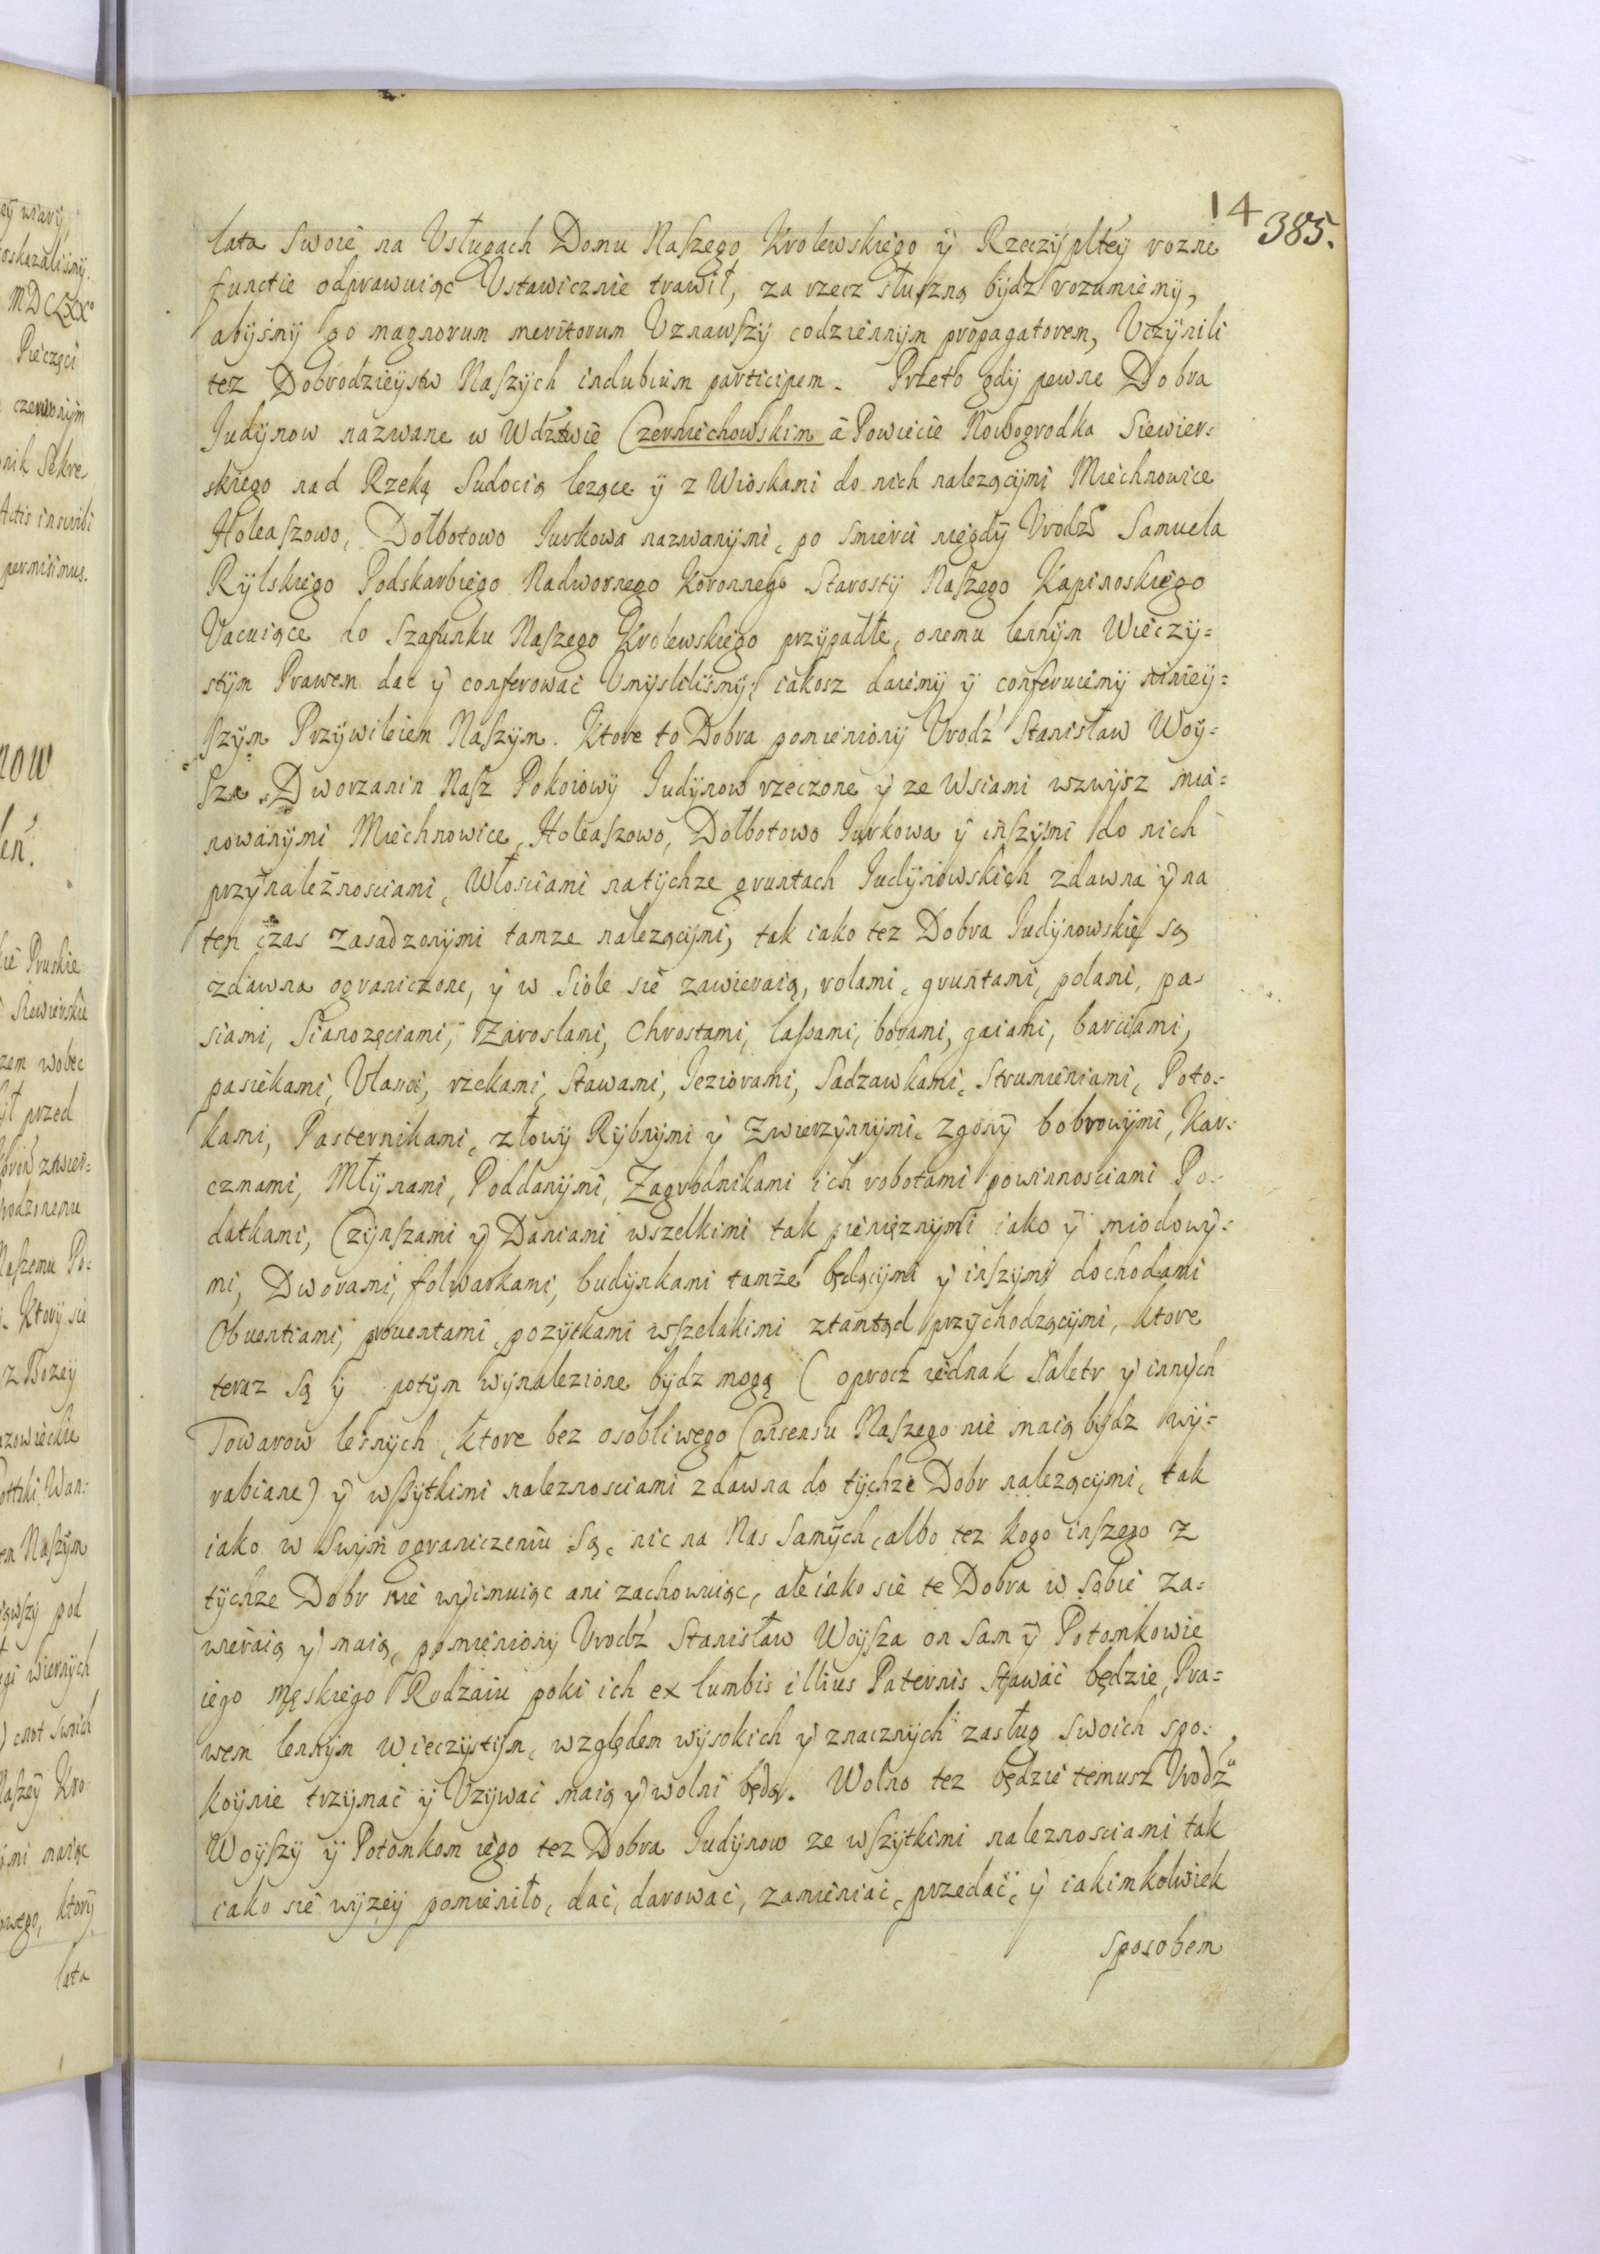 14 385.
lata swoie na Usługach Domu Naszego Krolewskiego ÿ Rzeczÿpltey rozne
functie odprawuiąc Ustawicznie trawił, za rzecz słuszną bÿdz rozumiemÿ,
abÿsmÿ go magnorum meritorum Uznawszÿ codziennÿm propagatorem, Uczÿnili
tez Dobrodzieÿstw Naszÿch indubium participem. Przeto gdÿ pewne Dobra
Judÿnow nazwane w Wdztwie Czerniechowskim a Powiecie Nowogrodka Siewier=
skiego nad Rzeką Sudocią lezące ÿ z Wioskami do nich nalezącÿmi Miechnowice
Holeaszowo, Dołbotowo Jurkowa nazwanÿmi, po smierci niegdÿ Urodz Samuela
Rÿlskiego Podskarbiego Nadwornego Koronnego Starostÿ Naszego Kapinoskiego
Vacuiące do Szafunku Naszego Krolewskiego przÿpadłe, onemu lennÿm Wieczÿ=
stÿm Prawem dac ÿ conferowac Umÿslilismÿ: iakosz daiemÿ ÿ conferuiemÿ ninieÿ=
szÿm Przÿwileiem Naszÿm. Ktore to Dobra pomienionÿ Urodz Stanisław Woÿ=
sza Dworzanin Nasz Pokoiowÿ Judÿnow rzeczone ÿ ze Wsiami wzwÿsz mia=
nowanÿmi Miechnowice, Holeaszowo, Dołbotowo Jurkowa ÿ inszÿmi do nich
przÿnaleznosciami, Włosciami natÿchze gruntach Judÿnowskich zdawna ÿ na
ten czas zasadzonÿmi tamze nalezącÿmi, tak iako tez Dobra Judÿnowskie są
zdawna ograniczone, ÿ w Sobie się zawieraią, rolami, gruntami, polami, pa=
siami, Sianozęciami, Zaroslami, Chrostami, lassami, borami, gaiami, barciami,
pasiekami, Ulami, rzekami, Stawami, Jeziorami, Sadzawkami, Strumieniami, Poto=
kami, Pasternikami, złowÿ Rÿbnÿmi ÿ Zwierzÿnnÿmi, zgonÿ bobrowÿmi, Kar=
cznami, Młÿnami, Poddanÿmi, Zagrodnikami ich robotami powinnosciami Po=
datkami, Czÿnszami ÿ Daniami wszelkimi tak pienięznÿmi iako ÿ miodowÿ=
mi, Dworami, folwarkami, budÿnkami tamze będącÿmi ÿ inszÿmi dochodami
Obuentiami, prouentami, pozÿtkami wszelakimi ztamtąd przÿchodzącÿmi, ktore
teraz są ÿ potÿm wÿnalezione bÿdz mogą ( oprocz iednak Saletr ÿ innÿch
Towarow lesnÿch, ktore bez osobliwego Consensu Naszego nie maią bÿdz wÿ=
rabiane) ÿ wszÿtkimi naleznosciami zdawna do tÿchze Dobr nalezącÿmi, tak
iako w swÿm ograniczeniu są, nic na Nas Samÿch, albo tez kogo inszego z
tÿchze Dobr nie wÿimuiąc ani zachowuiąc, ale iako się te Dobra w sobie za=
wieraią ÿ maią, pomienionÿ Urodz Stanisław Woÿsza on sam ÿ Potomkowie
iego męskiego Rodzaiu poki ich ex lumbis illius Paternis stawać będzie, Pra=
wem lennÿm wieczÿstÿm, względem wÿsokich ÿ znacznÿch zasług swoich spo=
koÿnie trzÿmać ÿ Uzÿwać maią ÿ wolni będą. Wolno tez będzie temusz Urodz
Woÿszÿ ÿ Potomkom iego tez Dobra Judÿnow ze wszÿtkimi naleznosciami tak
iako się wÿzeÿ pomieniło, dać, darować, zamieniać, przedać, ÿ iakimkolwiek
sposobem